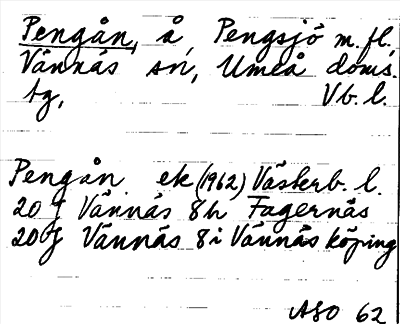 Pengån, å, Pengsjö m.fl.
Vännäs sn, Umeå doms.
tg, Vb. l.
Pengån ek (1962) Västerb. l.
20 J Vännäs 8h Fagernäs
20 J Vännäs 8i Vännäs köping
ASO 62